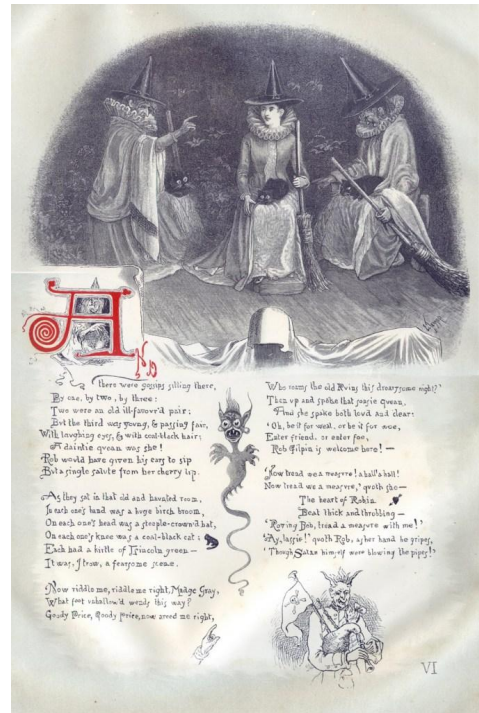 AND
there were gossips sitting there,
By one, by two, by three:
Two were an old ill-favour'd pair;
But the third was young, & passing fair,
With laughing eyes, & with coal-black hair;
A daintie quean was she!
Rob would have given his ears to sip
But a single salute from her cherry lip.
As they sat in that old and haunted room,
In each one's hand was a huge birch broom,
On each one's head was a steeple-crown'd hat,
On each one's knee was a coal-black cat;
Each had a kirtle of Lincoln green—
It was, I trow, a fearsome scene.
'Now riddle me, riddle me right, Madge Gray,
What foot unhallow'd wends this way?
Goody Price, Goody Price, now areed me right,
Who roams the old Ruins this drearysome night?'
Then up and spake that sonsie quean,
And she spake both loud and clear:
'Oh, be it for weal, or be it for woe,
Enter friend, or enter foe,
Rob Gilpin is welcome here!—
'Now tread me a measure! a hall! a hall!
Now tread me a measure,' quoth she—
The heart of Robin
Beat thick and throbbing—
'Roving Bob, tread a measure with me!'
'Ay, lassie!' quoth Rob, as her hand he gripes,
'Though Satan himself were blowing the pipes!'
VI